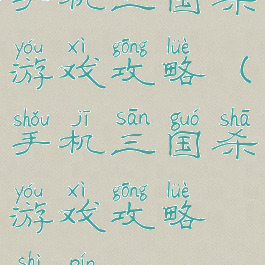 手机三国杀
yóu xì gōng lüè
游戏攻略（
shǒu jī sān guó shā
手机三国杀
yóu xì gōng lüè
游戏攻略
shì pín